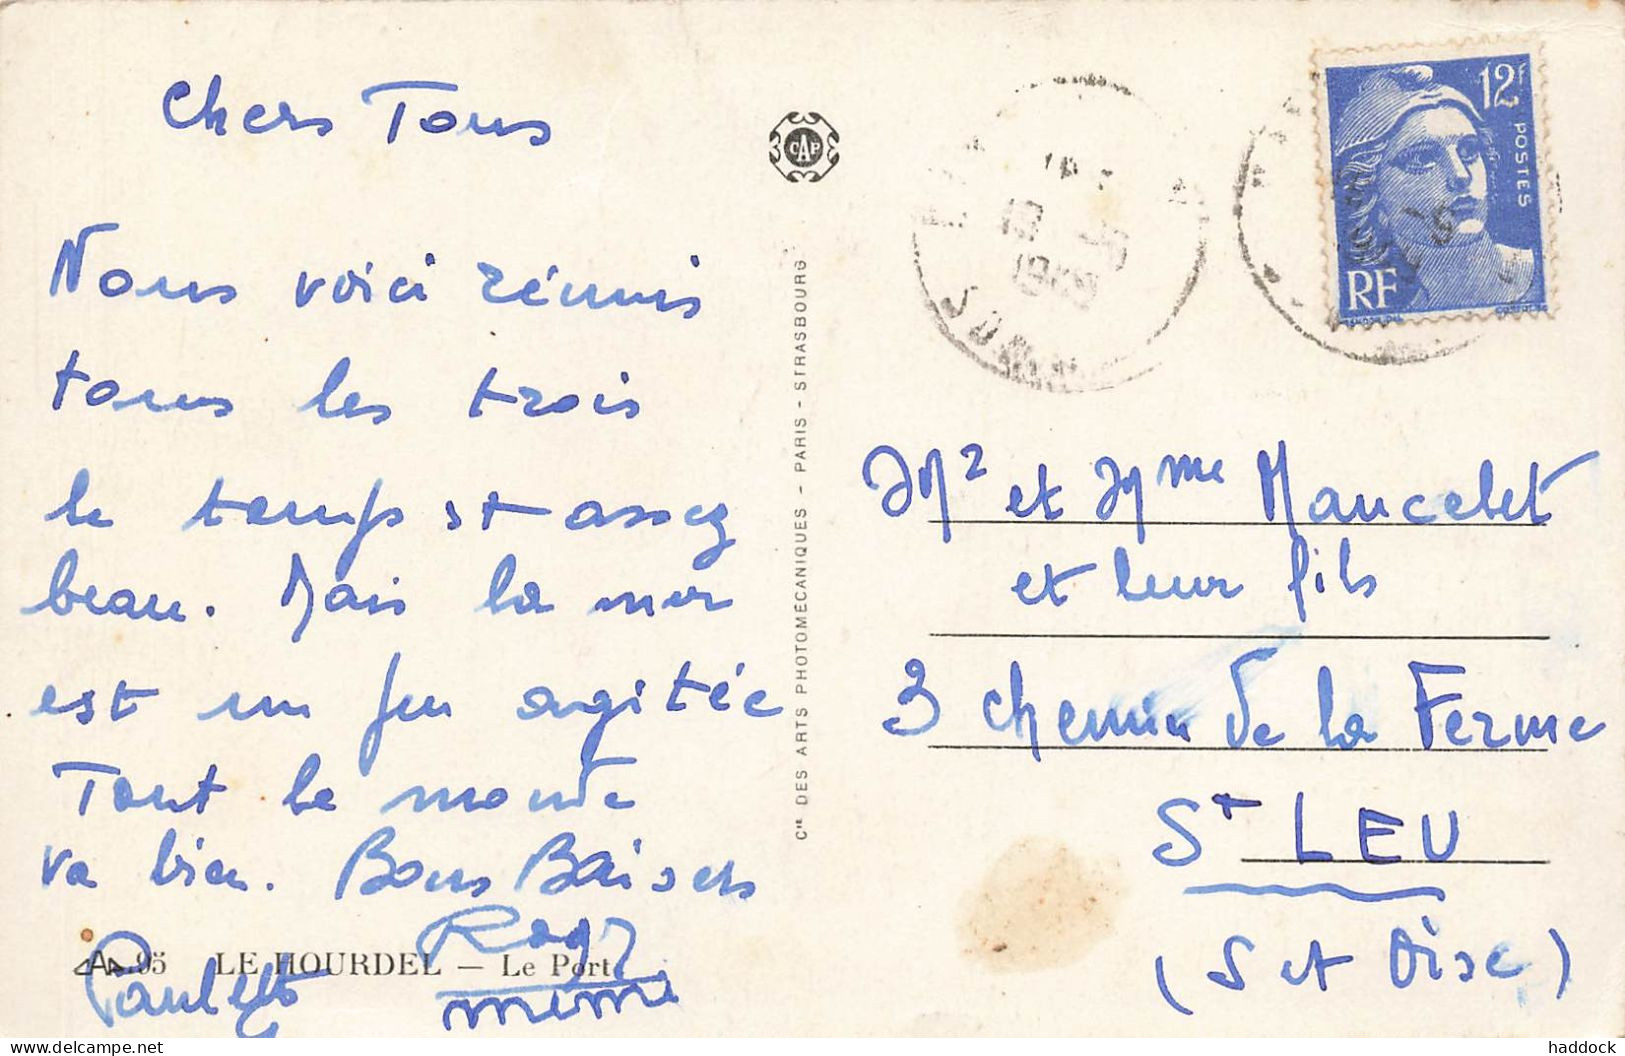 Chers Tous
Nous voici réunis
tous les trois
le temps est assez
beau. Mais la mer
est un peu agitée
Tout le monde
va bien. Bons Baisers
Roger
Paulette
mémé
95 LE HOURDEL — Le Port
CAP
Cie DES ARTS PHOTOMÉCANIQUES - PARIS - STRASBOURG
12F
POSTES
RF
SOMME
Mr et Mme Maucelet
et leur fils
3 chemin de la Ferme
St LEU
(S et Oise)
delcampe.net
haddock